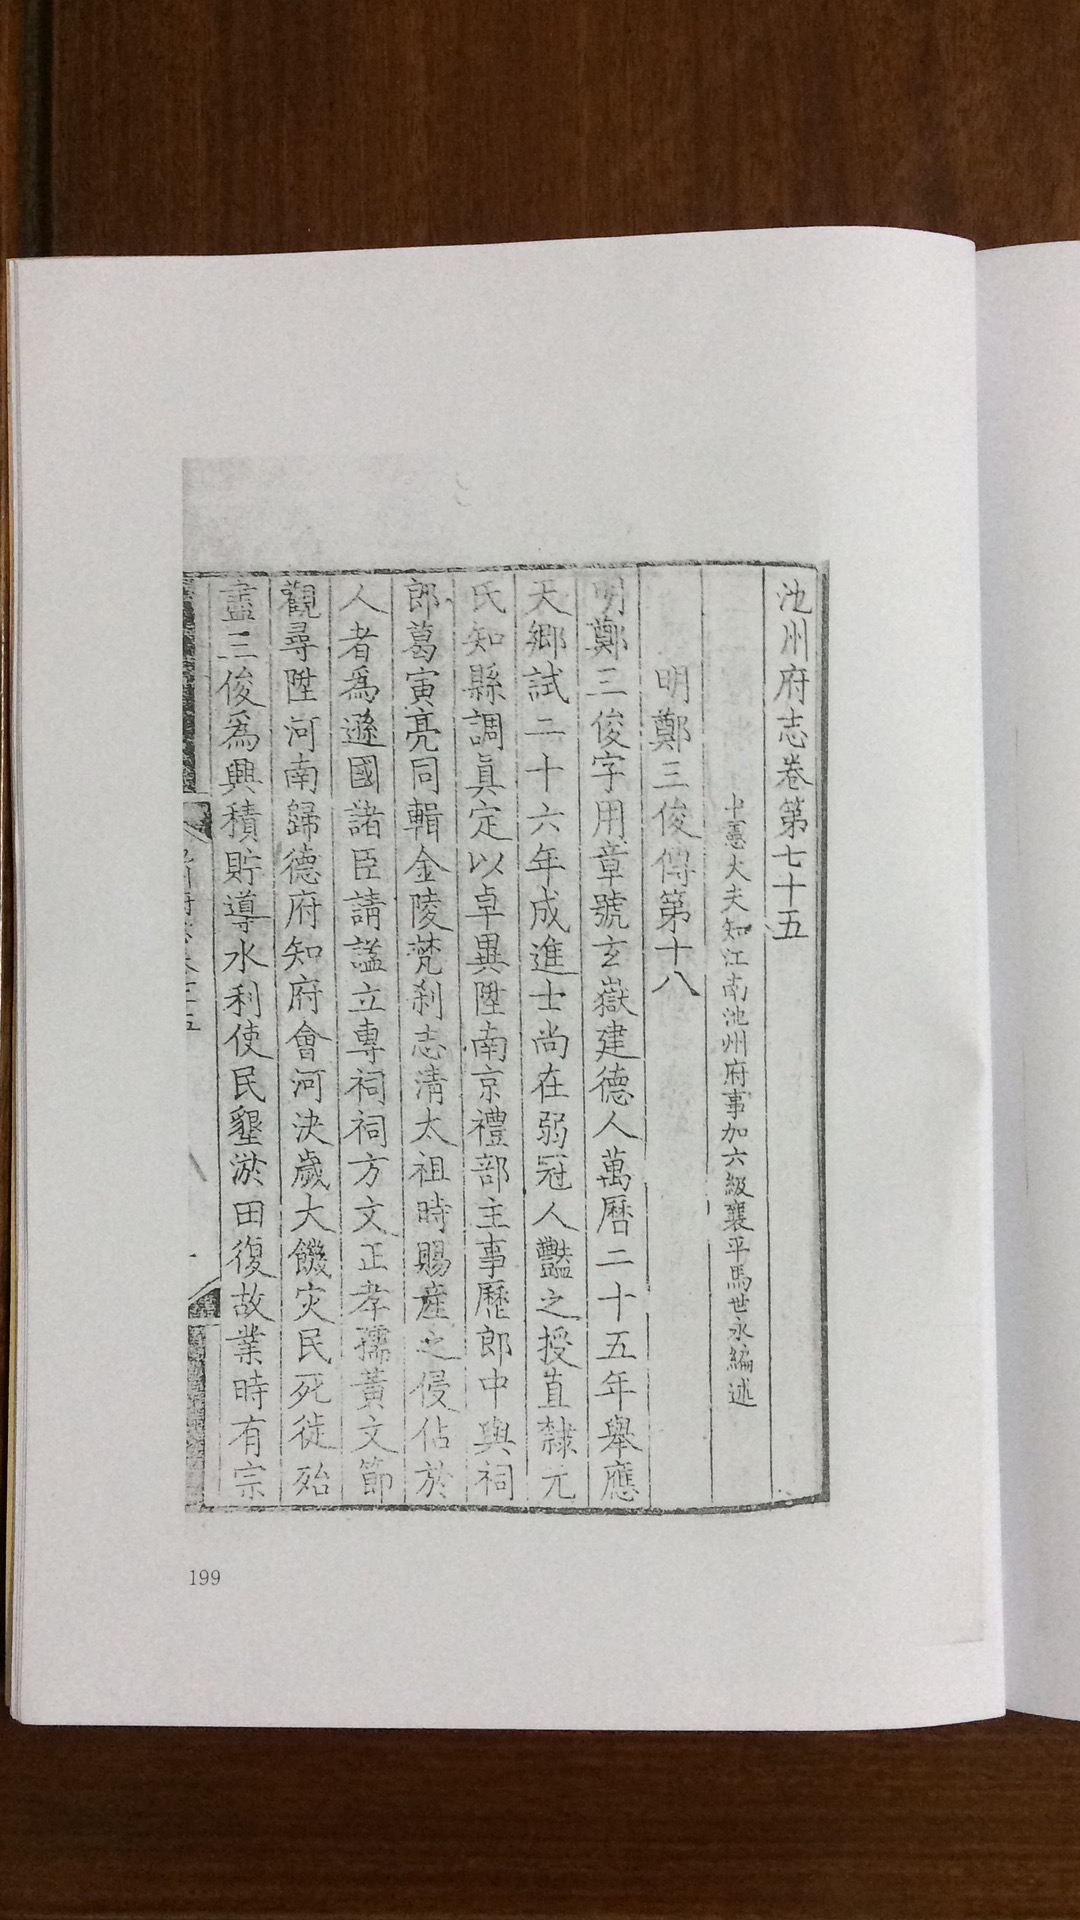 池州府志卷第七十五
中憲大夫知江南池州府事加六級襄平馬世永編述
明鄭三俊傳第十八
明鄭三俊字用章號玄嶽建德人萬曆二十五年舉應
天鄉試二十六年成進士尚在弱冠人豔之授直隸元
氏知縣調眞定以卓異陞南京禮部主事歷郎中與祠
郎葛寅亮同輯金陵梵剎志清太祖時賜産之侵佔於
人者爲遜國諸臣請謚立專祠祠方文正孝孺黃文節
觀尋陞河南歸德府知府會河決歲大饑灾民死徙殆
盡三俊爲興積貯導水利使民墾淤田復故業時有宗
199